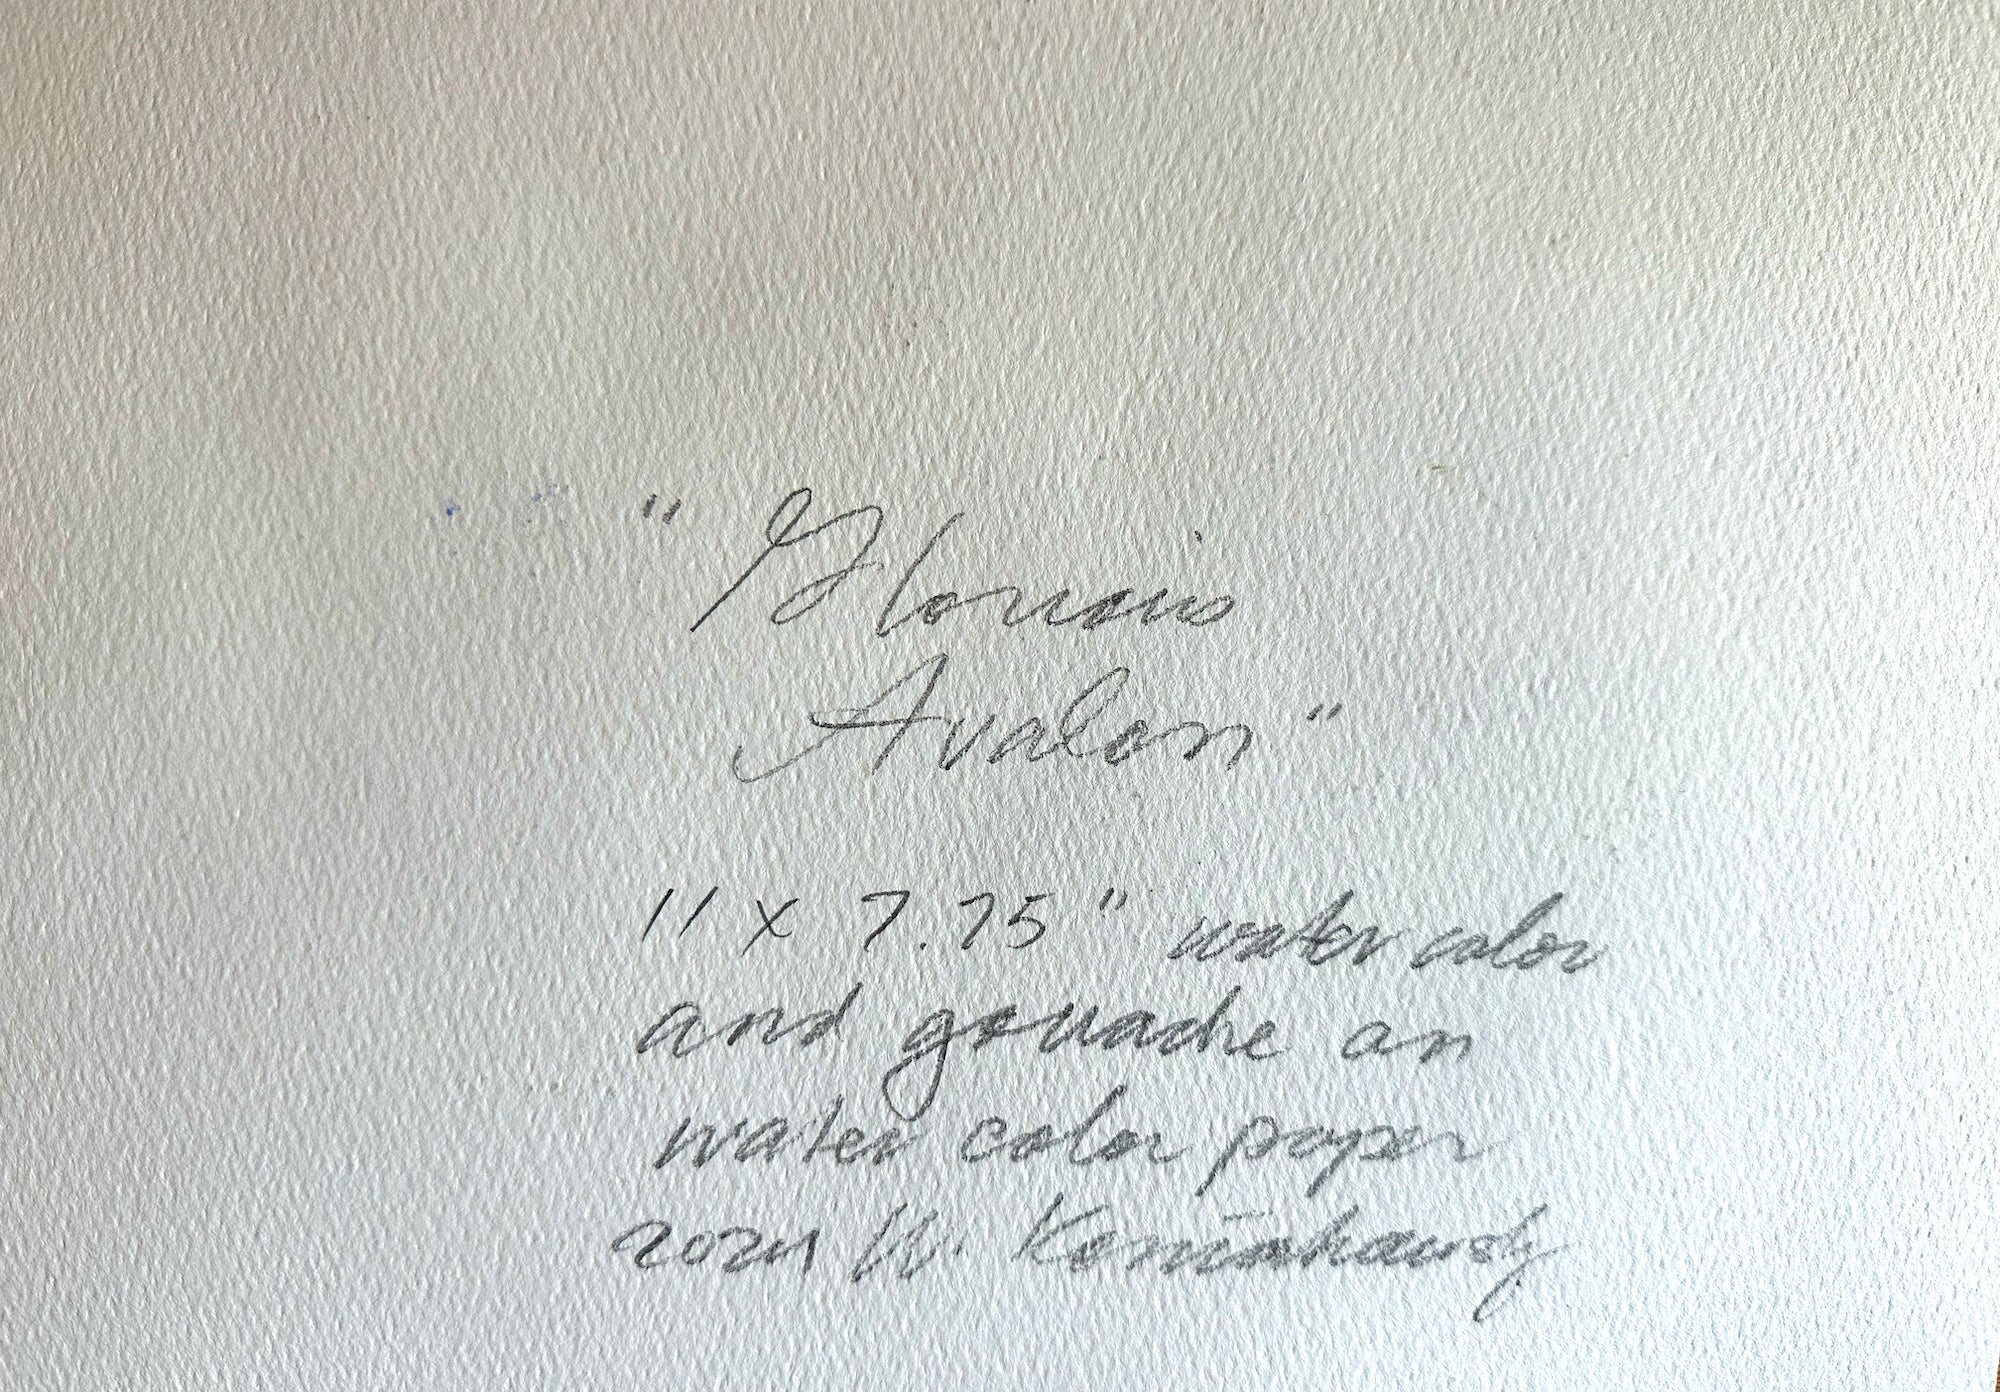 "Glorious
Avalon"
11 x 7.75" water color
and gouache on
water color paper
2021 W.